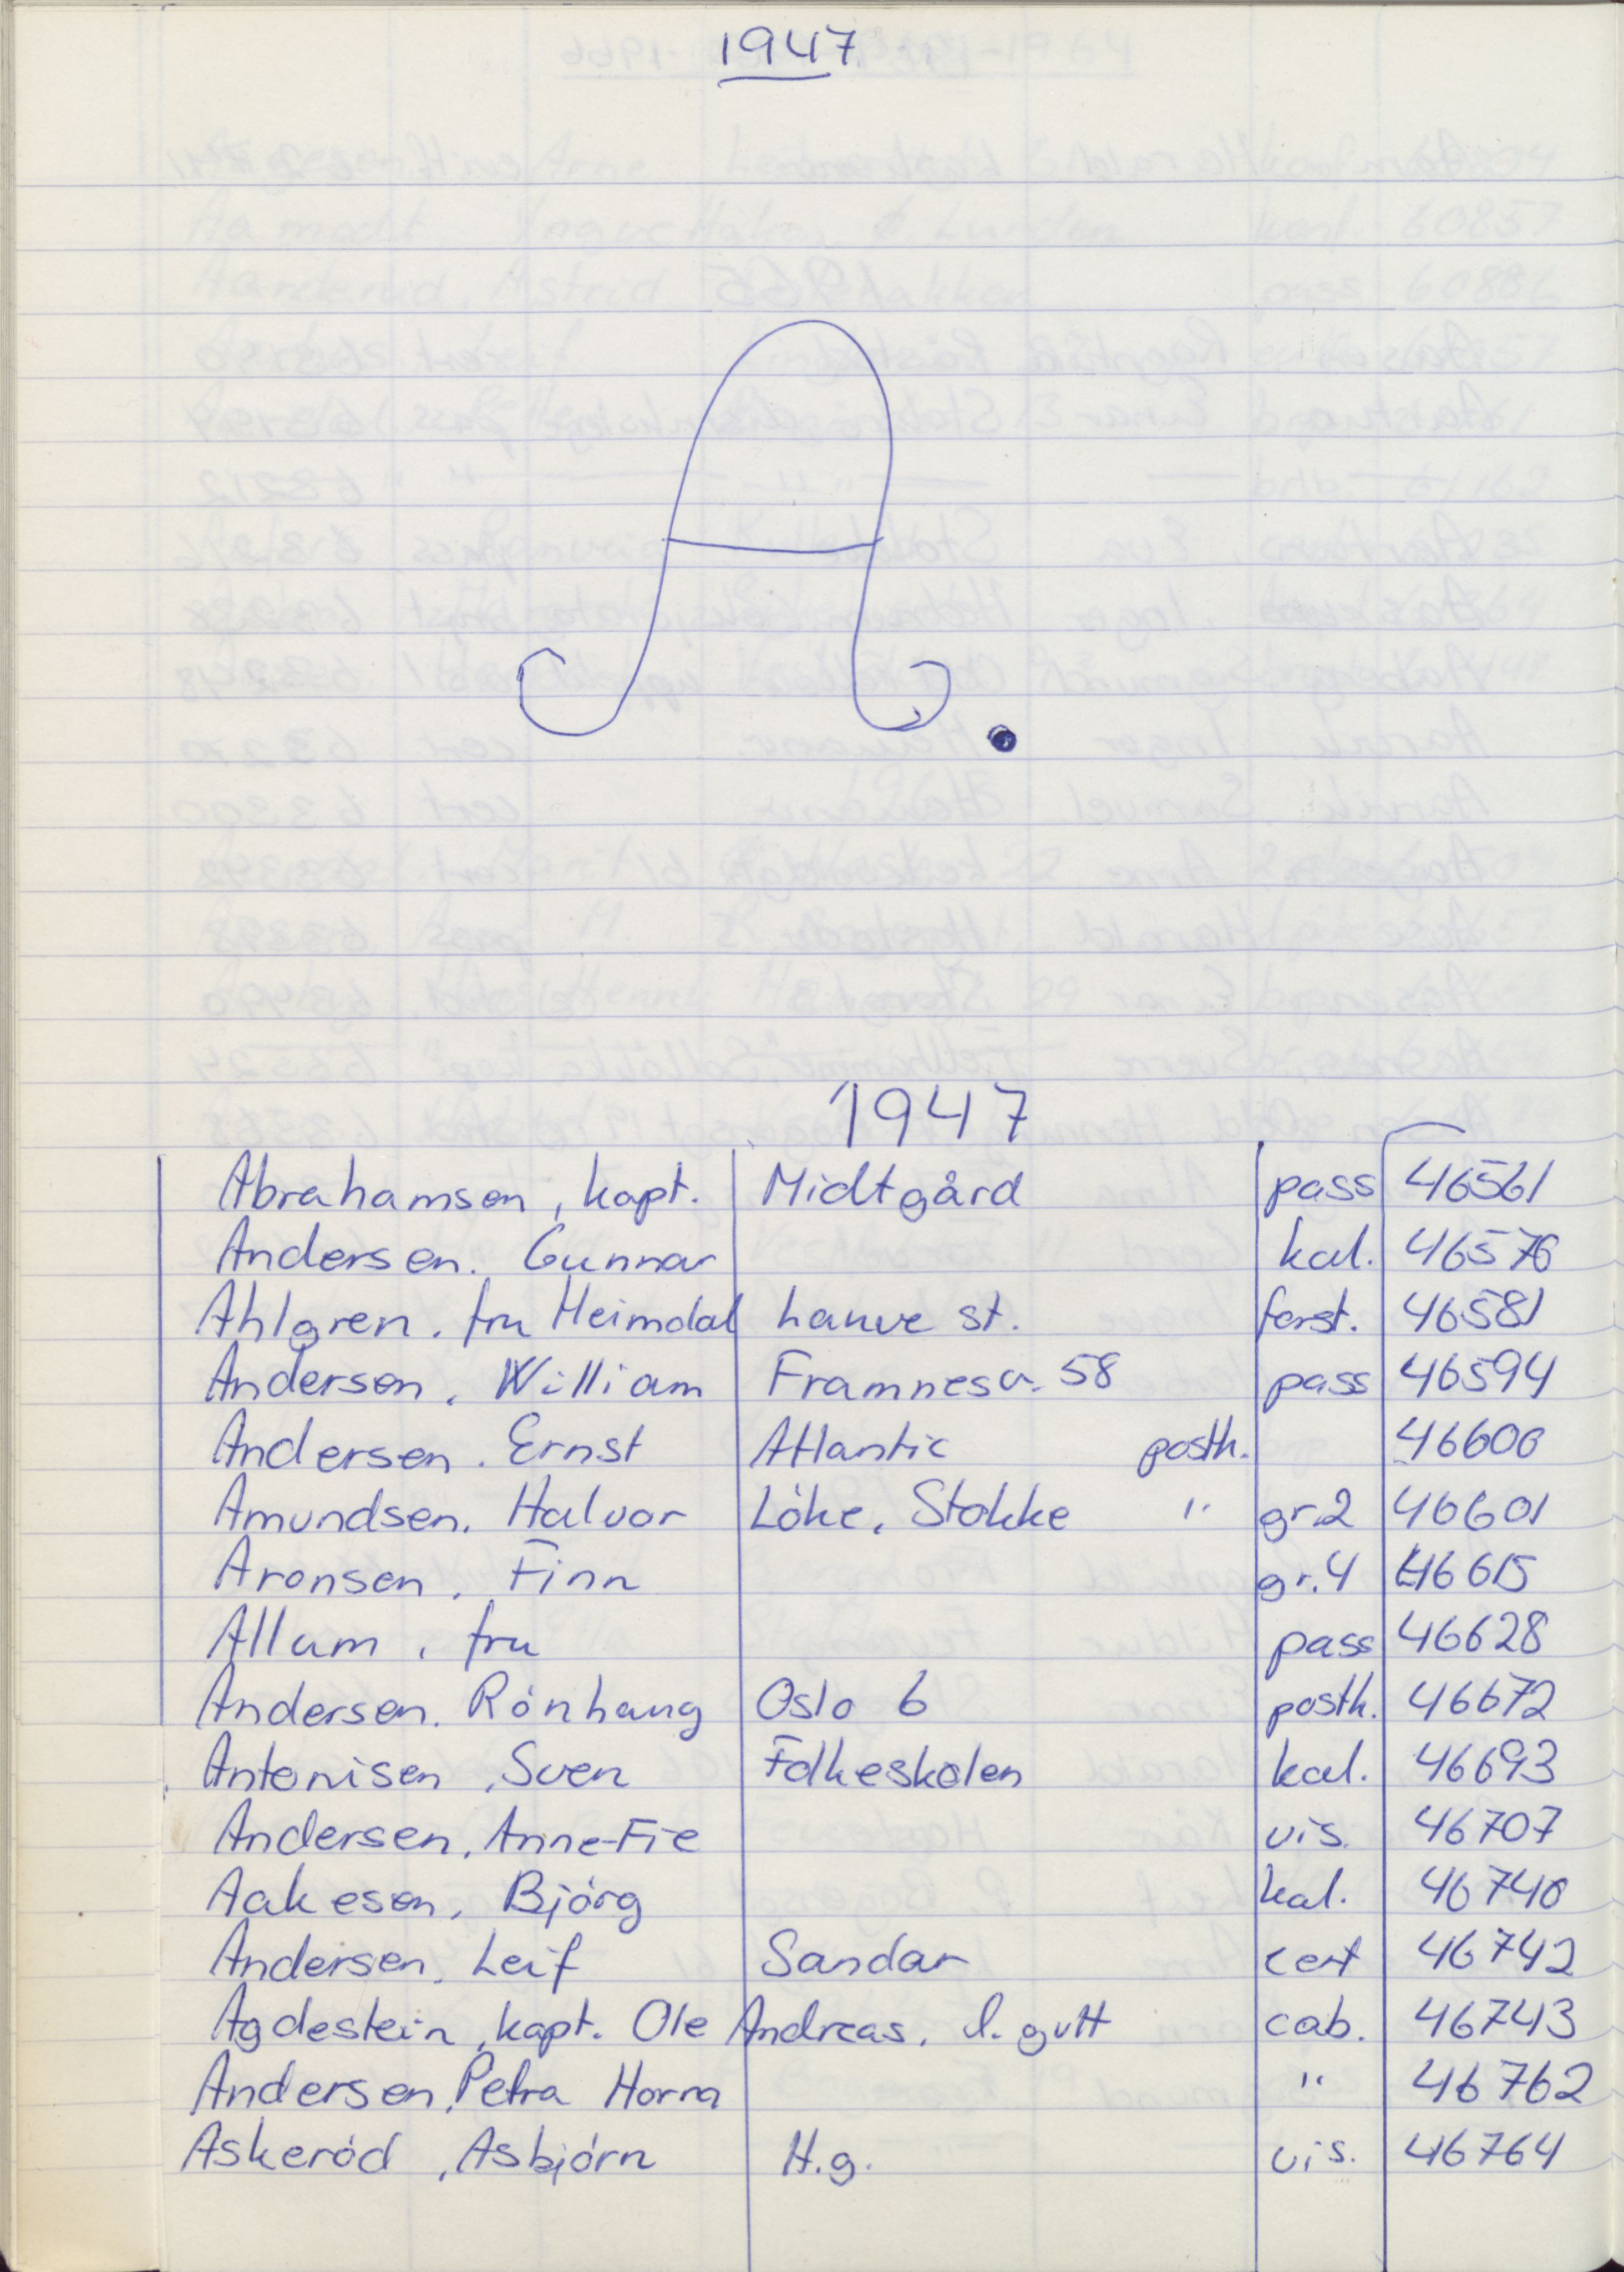 1947
A.
1947
Abrahamsen, kapt. Midtgård pass 46561
Andersen. Gunnar kal. 46576
Ahlgren. fru Heimdal Lauve st. forst. 46581
Andersen. William Framnesv. 58 pass 46594
Andersen. Ernst Atlantic postk. 46600
Amundsen. Halvor Löke, Stokke " gr.2 46601
Aronsen. Finn gr.4 46615
Allum, fru pass 46628
Andersen. Rönhaug Oslo 6 postk. 46672
Antonisen, Sven Folkeskolen kal. 46693
Andersen, Anne-Fie vis. 46707
Aakesen, Björg kal. 46740
Andersen, Leif Sandar cert 46742
Agdestein, kapt. Ole Andreas, l. gutt cab. 46743
Andersen, Petra Horra " 46762
Askeröd, Asbjörn H.g. vis. 46764